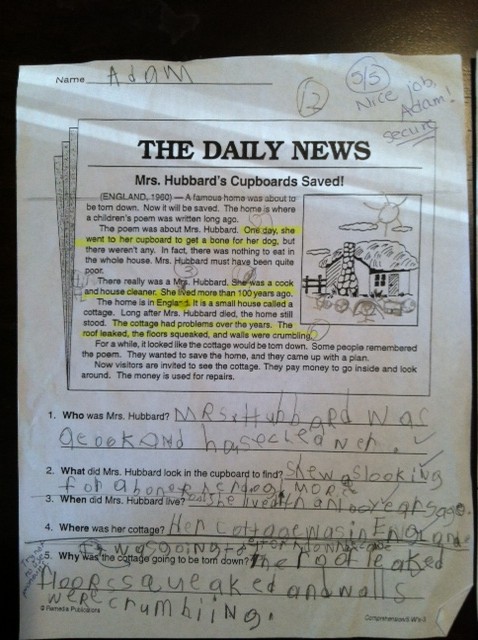 Name Adam
12
5/5
Nice job,
Adam!
secure
THE DAILY NEWS
Mrs. Hubbard's Cupboards Saved!
(ENGLAND, 1960) — A famous home was about to
be torn down. Now it will be saved. The home is where
a children's poem was written long ago.
The poem was about Mrs. Hubbard. One day, she
went to her cupboard to get a bone for her dog, but
there weren't any. In fact, there was nothing to eat in
the whole house. Mrs. Hubbard must have been quite
poor.
There really was a Mrs. Hubbard. She was a cook
and house cleaner. She lived more than 100 years ago.
The home is in England. It is a small house called a
cottage. Long after Mrs. Hubbard died, the home still
stood. The cottage had problems over the years. The
roof leaked, the floors squeaked, and walls were crumbling.
For a while, it looked like the cottage would be torn down. Some people remembered
the poem. They wanted to save the home, and they came up with a plan.
Now visitors are invited to see the cottage. They pay money to go inside and look
around. The money is used for repairs.
1. Who was Mrs. Hubbard? MRs. Hubbard was
a cook and
2. What did Mrs. Hubbard look in the cupboard to find? she was looking
for a bone for her dog.
3. When did Mrs. Hubbard live? she lived more than 100 years ago.
4. Where was her cottage? Her cottage was in England
5. Why was the cottage going to be torn down? It was going to be torn down because the roof leaked
floors squeaked and walls
were crumbling.
© Remedia Publications
Comprehension/5 W's-3